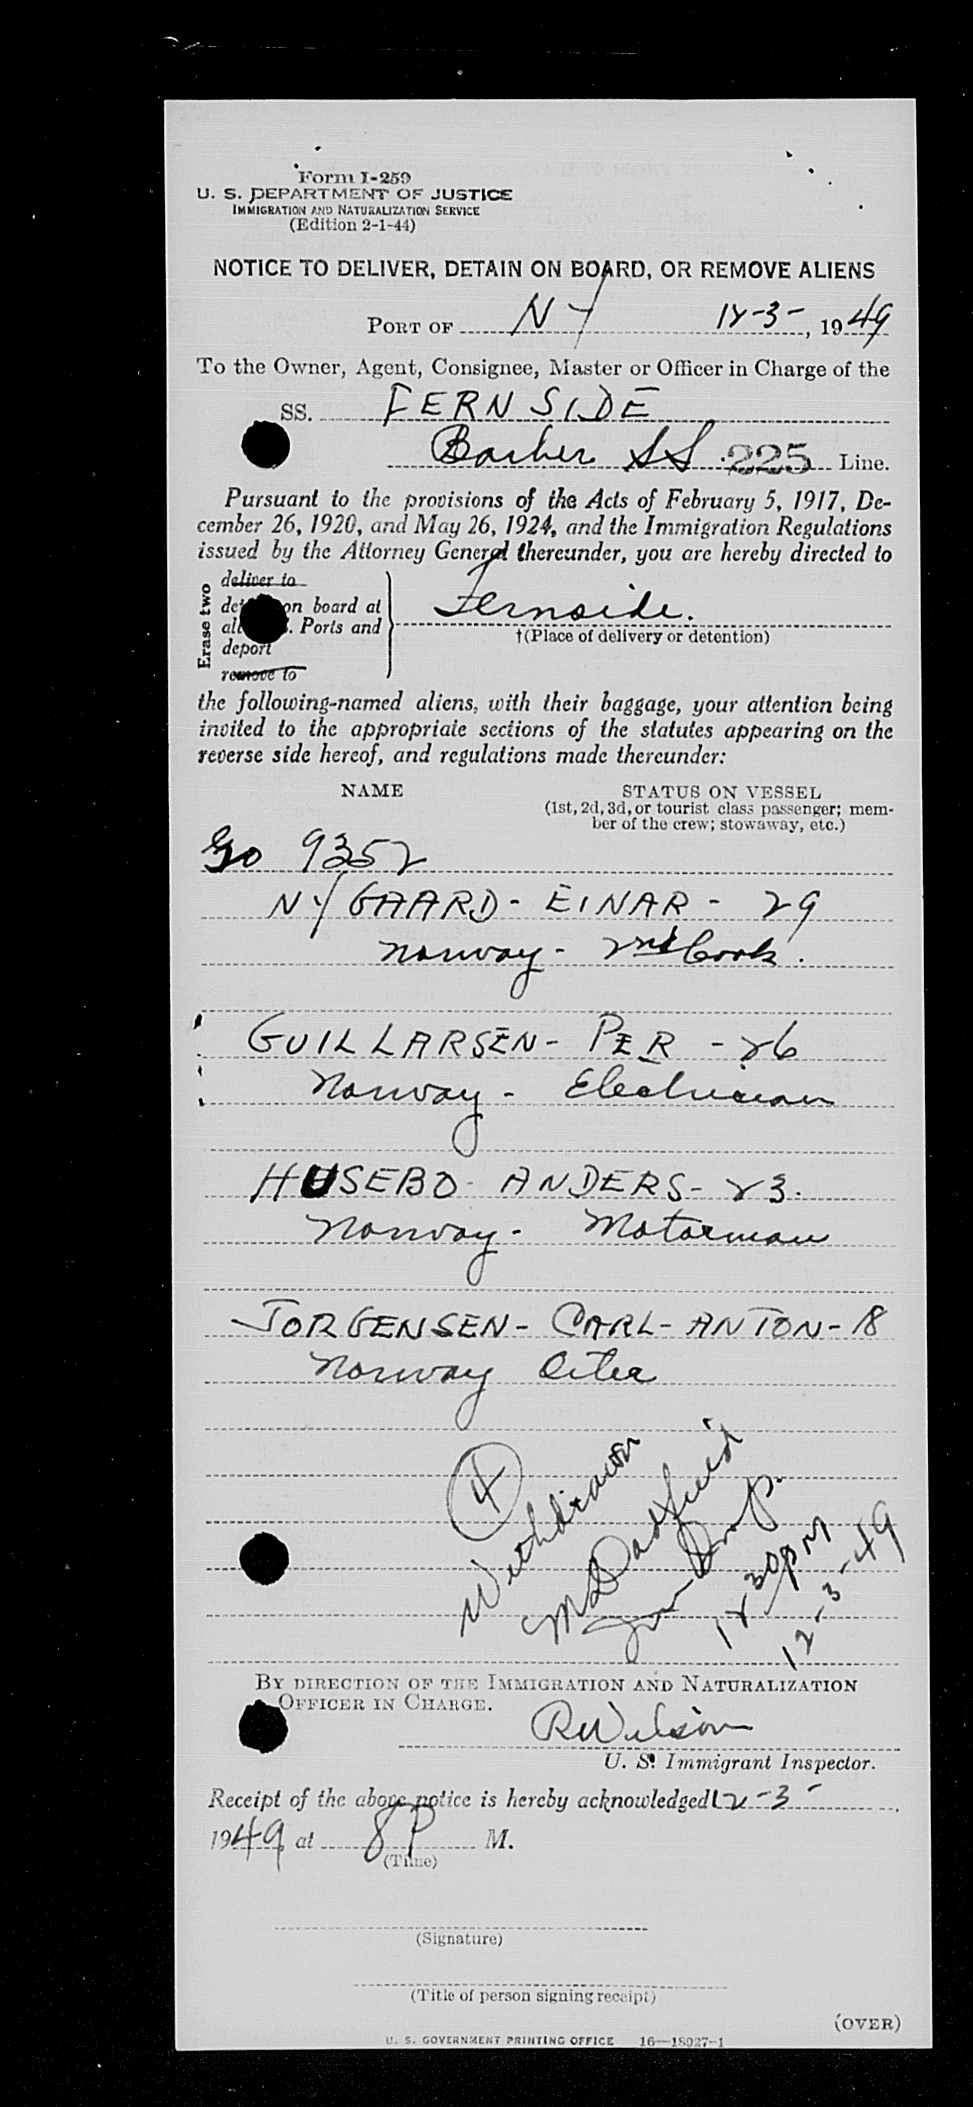 Form I-259
U. S. DEPARTMENT OF JUSTICE
IMMIGRATION AND NATURALIZATION SERVICE
(Edition 2-1-44)
NOTICE TO DELIVER, DETAIN ON BOARD, OR REMOVE ALIENS
PORT OF NY 12-3-, 1949
To the Owner, Agent, Consignee, Master or Officer in Charge of the
SS. FERNSIDE
Barber SS 225 Line.
Pursuant to the provisions of the Acts of February 5, 1917, De-
cember 26, 1920, and May 26, 1924, and the Immigration Regulations
issued by the Attorney General thereunder, you are hereby directed to
Erase two
deliver to
on board at
Ports and
deport
remove to
Fernside.
†(Place of delivery or detention)
the following-named aliens, with their baggage, your attention being
invited to the appropriate sections of the statutes appearing on the
reverse side hereof, and regulations made thereunder:
NAME STATUS ON VESSEL
(1st, 2d, 3d, or tourist class passenger; mem-
ber of the crew; stowaway, etc.)
Go 9352
NYGAARD - EINAR - 29
Norway - 2nd Cook.
GUILLARSEN - PER - 26
Norway - Electrician
HUSEBO - ANDERS - 23.
Norway - Motorman
JORGENSEN - CARL - ANTON - 18
Norway Oiler
4
Withdrawn
Imm Insp.
12 30 PM
12-3-49
BY DIRECTION OF THE IMMIGRATION AND NATURALIZATION
OFFICER IN CHARGE.
RWilson
U. S. Immigrant Inspector.
Receipt of the above notice is hereby acknowledged 12-3-
1949 at 8P M.
(Time)
(Signature)
(Title of person signing receipt)
(OVER)
U. S. GOVERNMENT PRINTING OFFICE 16—18027-1